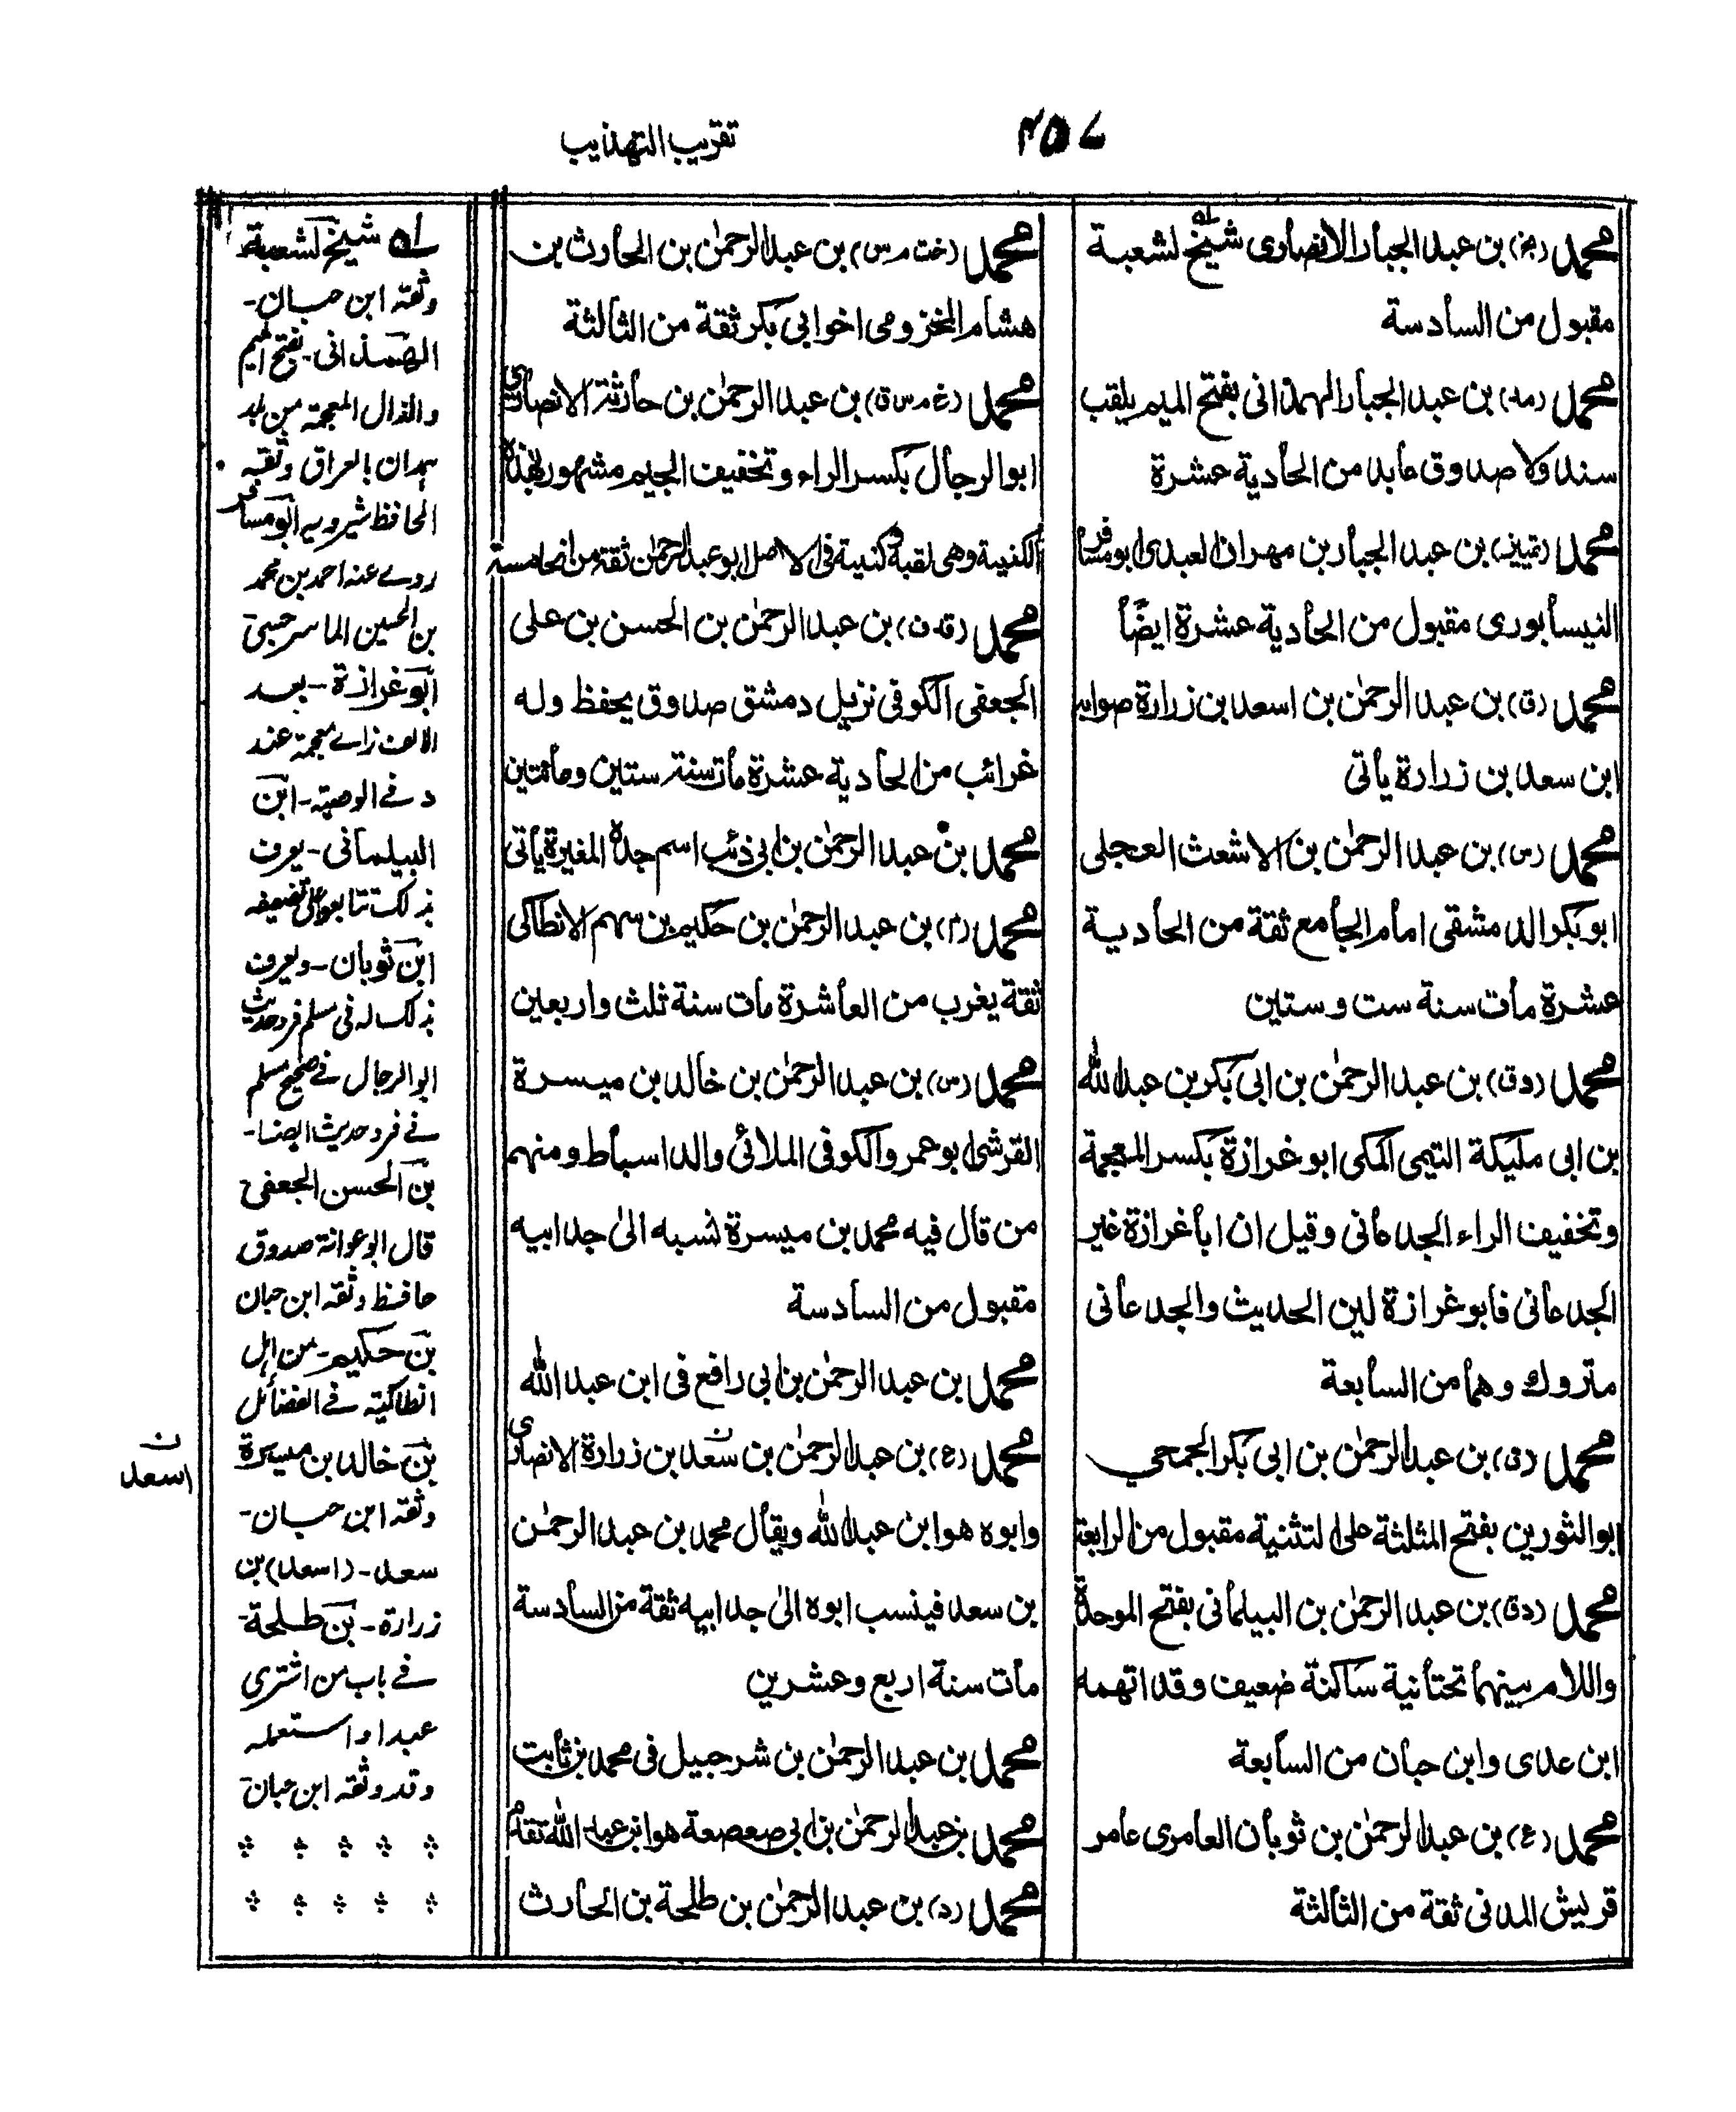 ۴۵۷
تقريب التهذيب
محمد (بخ) بن عبد الجبار الانصاری شيخ لشعبة
مقبول من السادسة
محمد (مد) بن عبد الجبار الهمذانی بفتح الميم يلقب
سندولا صدوق عابد من الحادية عشرة
محمد (تمييز) بن عبد الجبار بن مهران العبدی ابو مسافر
النيسابوری مقبول من الحادية عشرة ايضًا
محمد (ق) بن عبد الرحمٰن بن اسعد بن زرارة صوابه
ابن سعد بن زرارة ياتی
محمد (س) بن عبد الرحمٰن بن الاشعث العجلی
ابو بكر الدمشقی امام الجامع ثقة من الحادية
عشرة مات سنة ست وستين
محمد (دق) بن عبد الرحمٰن بن ابی بكر بن عبد الله
بن ابی مليكة التيمی المكی ابو غرازة بكسر المعجمة
وتخفيف الراء الجدعانی وقيل ان ابا غرازة غير
الجدعانی فابو غرازة لين الحديث والجدعانی
متروك وهما من السابعة
محمد (ق) بن عبد الرحمٰن بن ابی بكر الجمحي
ابو الثورين بفتح المثلثة علی التثنية مقبول من الرابعة
محمد (دق) بن عبد الرحمٰن بن البيلمانی بفتح الموحدة
واللام بينهما تحتانية ساكنة ضعيف وقد اتهمه
ابن عدی وابن حبان من السابعة
محمد (ع) بن عبد الرحمٰن بن ثوبان العامری عامر
قريش المدنی ثقة من الثالثة
محمد (خت م س) بن عبد الرحمٰن بن الحارث بن
هشام المخزومی اخو ابی بكر ثقة من الثالثة
محمد (خ م س ق) بن عبد الرحمٰن بن حارثة الانصاری
ابو الرجال بكسر الراء وتخفيف الجيم مشهور بهذه
الكنية وهی لقبه وكنيته فی الاصل ابو عبد الرحمٰن ثقة من الخامسة
محمد (قد ن) بن عبد الرحمٰن بن الحسن بن علی
الجعفی الكوفی نزيل دمشق صدوق يحفظ وله
غرائب من الحادية عشرة مات سنة ستين ومائتين
محمد بن عبد الرحمٰن بن ابی ذئب اسم جده المغيرة ياتی
محمد (م) بن عبد الرحمٰن بن حكيم بن سهم الانطاكی
ثقة يغرب من العاشرة مات سنة ثلث واربعين
محمد (س) بن عبد الرحمٰن بن خالد بن ميسرة
القرشی ابو عمرو الكوفی الملائی والد اسباط ومنهم
من قال فيه محمد بن ميسرة نسبه الیٰ جد ابيه
مقبول من السادسة
محمد بن عبد الرحمٰن بن ابی رافع فی ابن عبد الله
محمد (ع) بن عبد الرحمٰن بن سعد بن زرارة الانصاری
وابوه هو ابن عبد الله ويقال محمد بن عبد الرحمٰن
بن سعد فينسب ابوه الیٰ جد ابيه ثقة من السادسة
مات سنة اربع وعشرين
محمد بن عبد الرحمٰن بن شرحبيل فی محمد بن ثابت
محمد بن عبد الرحمٰن بن ابی صعصعة هو ابن عبد الله تقدم
محمد (د) بن عبد الرحمٰن بن طلحة بن الحارث
له شيخ لشعبة
وثقه ابن حبان-
الهمذانی- بفتح الميم
والذال المعجمة من بلد
همدان بالعراق وثقه
الحافظ شيرويه ابو مسافر
روے عنه احمد بن محمد
بن الحسين الماسرجسی
ابو غرازة- بعد
الالف زاے معجمة عند
د فے الوصية- ابن
البيلمانی- يعرف
بذلك تتابعوا علی تضعيفه
ابن ثوبان- ويعرف
بذلك له فی مسلم فرد حديث
ابو الرجال فے صحيح مسلم
فے فرد حديث ايضا-
بن الحسن الجعفی
قال ابو عوانة صدوق
حافظ وثقه ابن حبان
بن حكيم- من اهل
انطاكية فے الفضائل
بن خالد بن ميسرة
وثقه ابن حبان-
سعد- (اسعد) بن
زرارة- بن طلحة-
فے باب من اشتری
عبدا واستعمله
وقد وثقه ابن حبان
ن
اسعد